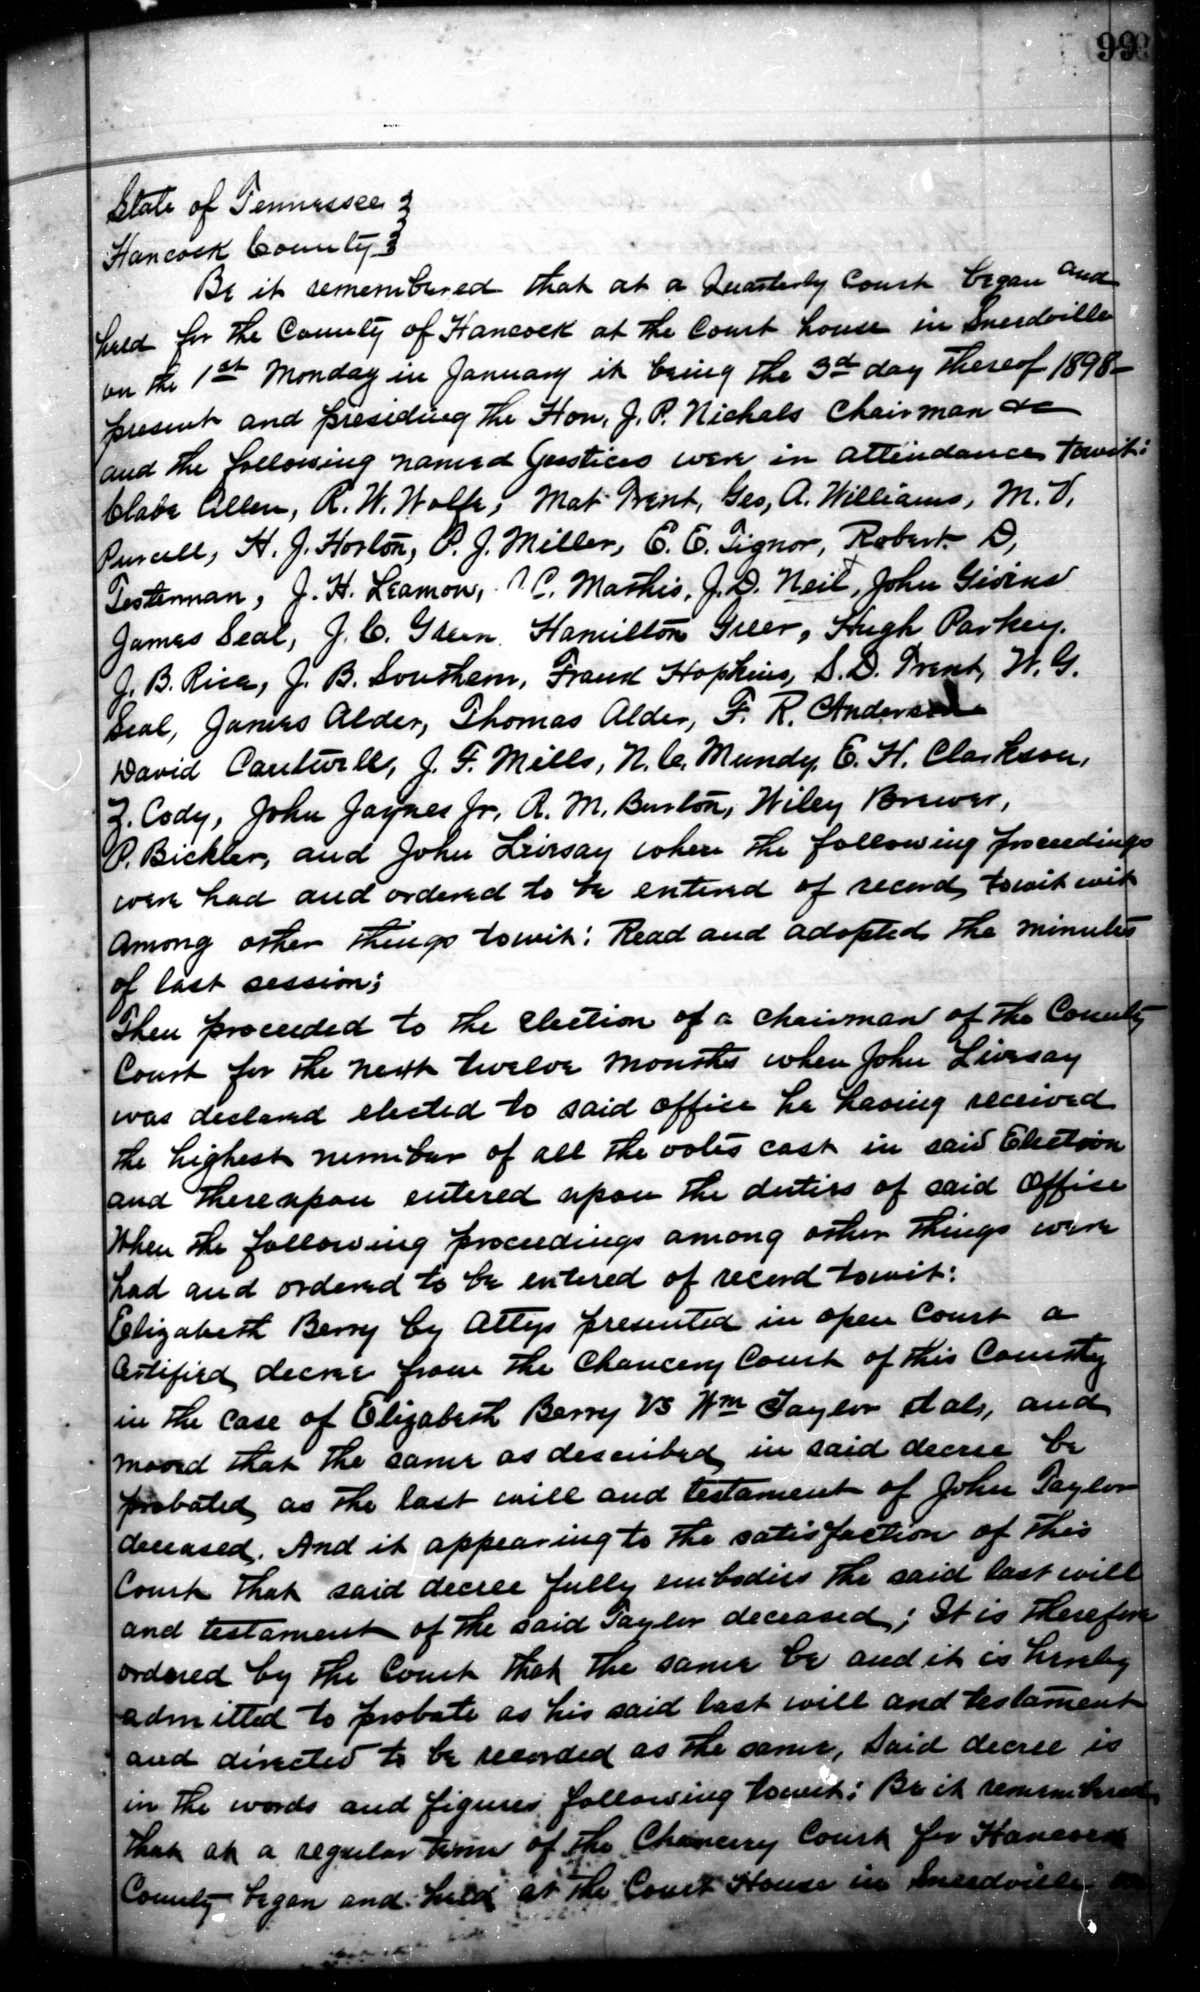 99
State of Tennessee }
Hancock County }
Be it remembered that at a Quarterly Court began and
held for the County of Hancock at the Court house in Sneedville
on the 1st Monday in January it being the 3d day thereof 1898–
present and presiding the Hon. J. P. Nichols Chairman &c
and the following named Justices were in attendance towit:
Clabe Allen, R. W. Wolfe, Mat Trent, Geo, A. Williams, M. V.
Purcell, H. J. Horton, P. J. Miller, E. E. Tignor, Robert D,
Testerman, J. H. Leamon, C. Mathis, J. D. Neil, John Givins
James Seal, J. C. Green Hamilton Greer, Hugh Parkey.
J. B. Rice, J. B. Southern, Frank Hopkins, S. D. Trent, W. G.
Seal, James Alder, Thomas Alder, F. R. Anderson
David Cantwell, J. F. Mills, N. C. Mundy, E. H. Clarkson,
Z. Cody, John Jaynes Jr, A. M. Burton, Wiley Brewer,
P. Bickler, and John Livesay where the following proceedings
were had and ordered to be entered of record towit wit
among other things towit: Read and adopted the minutes
of last session;
Then proceeded to the election of a chairman of the County
Court for the next twelve months when John Livesay
was declared elected to said office he having received
the highest number of all the votes cast in said Election
and thereupon entered upon the duties of said office
When the following proceedings among other things were
had and ordered to be entered of record towit:
Elizabeth Berry by Attys presented in open Court a
Certified decree from the Chancery Court of this County
in the case of Elizabeth Berry VS Wm Taylor et als, and
moved that the same as described in said decree be
probated as the last will and testament of John Taylor
deceased. And it appearing to the satisfaction of this
Court that said decree fully embodies the said last will
and testament of the said Taylor deceased; It is therefore
ordered by the Court that the same be and it is hereby
admitted to probate as his said last will and testament
and directed to be recorded as the same, Said decree is
in the words and figures following towit: Be it remembered
that at a regular term of the Chancery Court for Hancock
County began and held at the Court House in Sneedville on